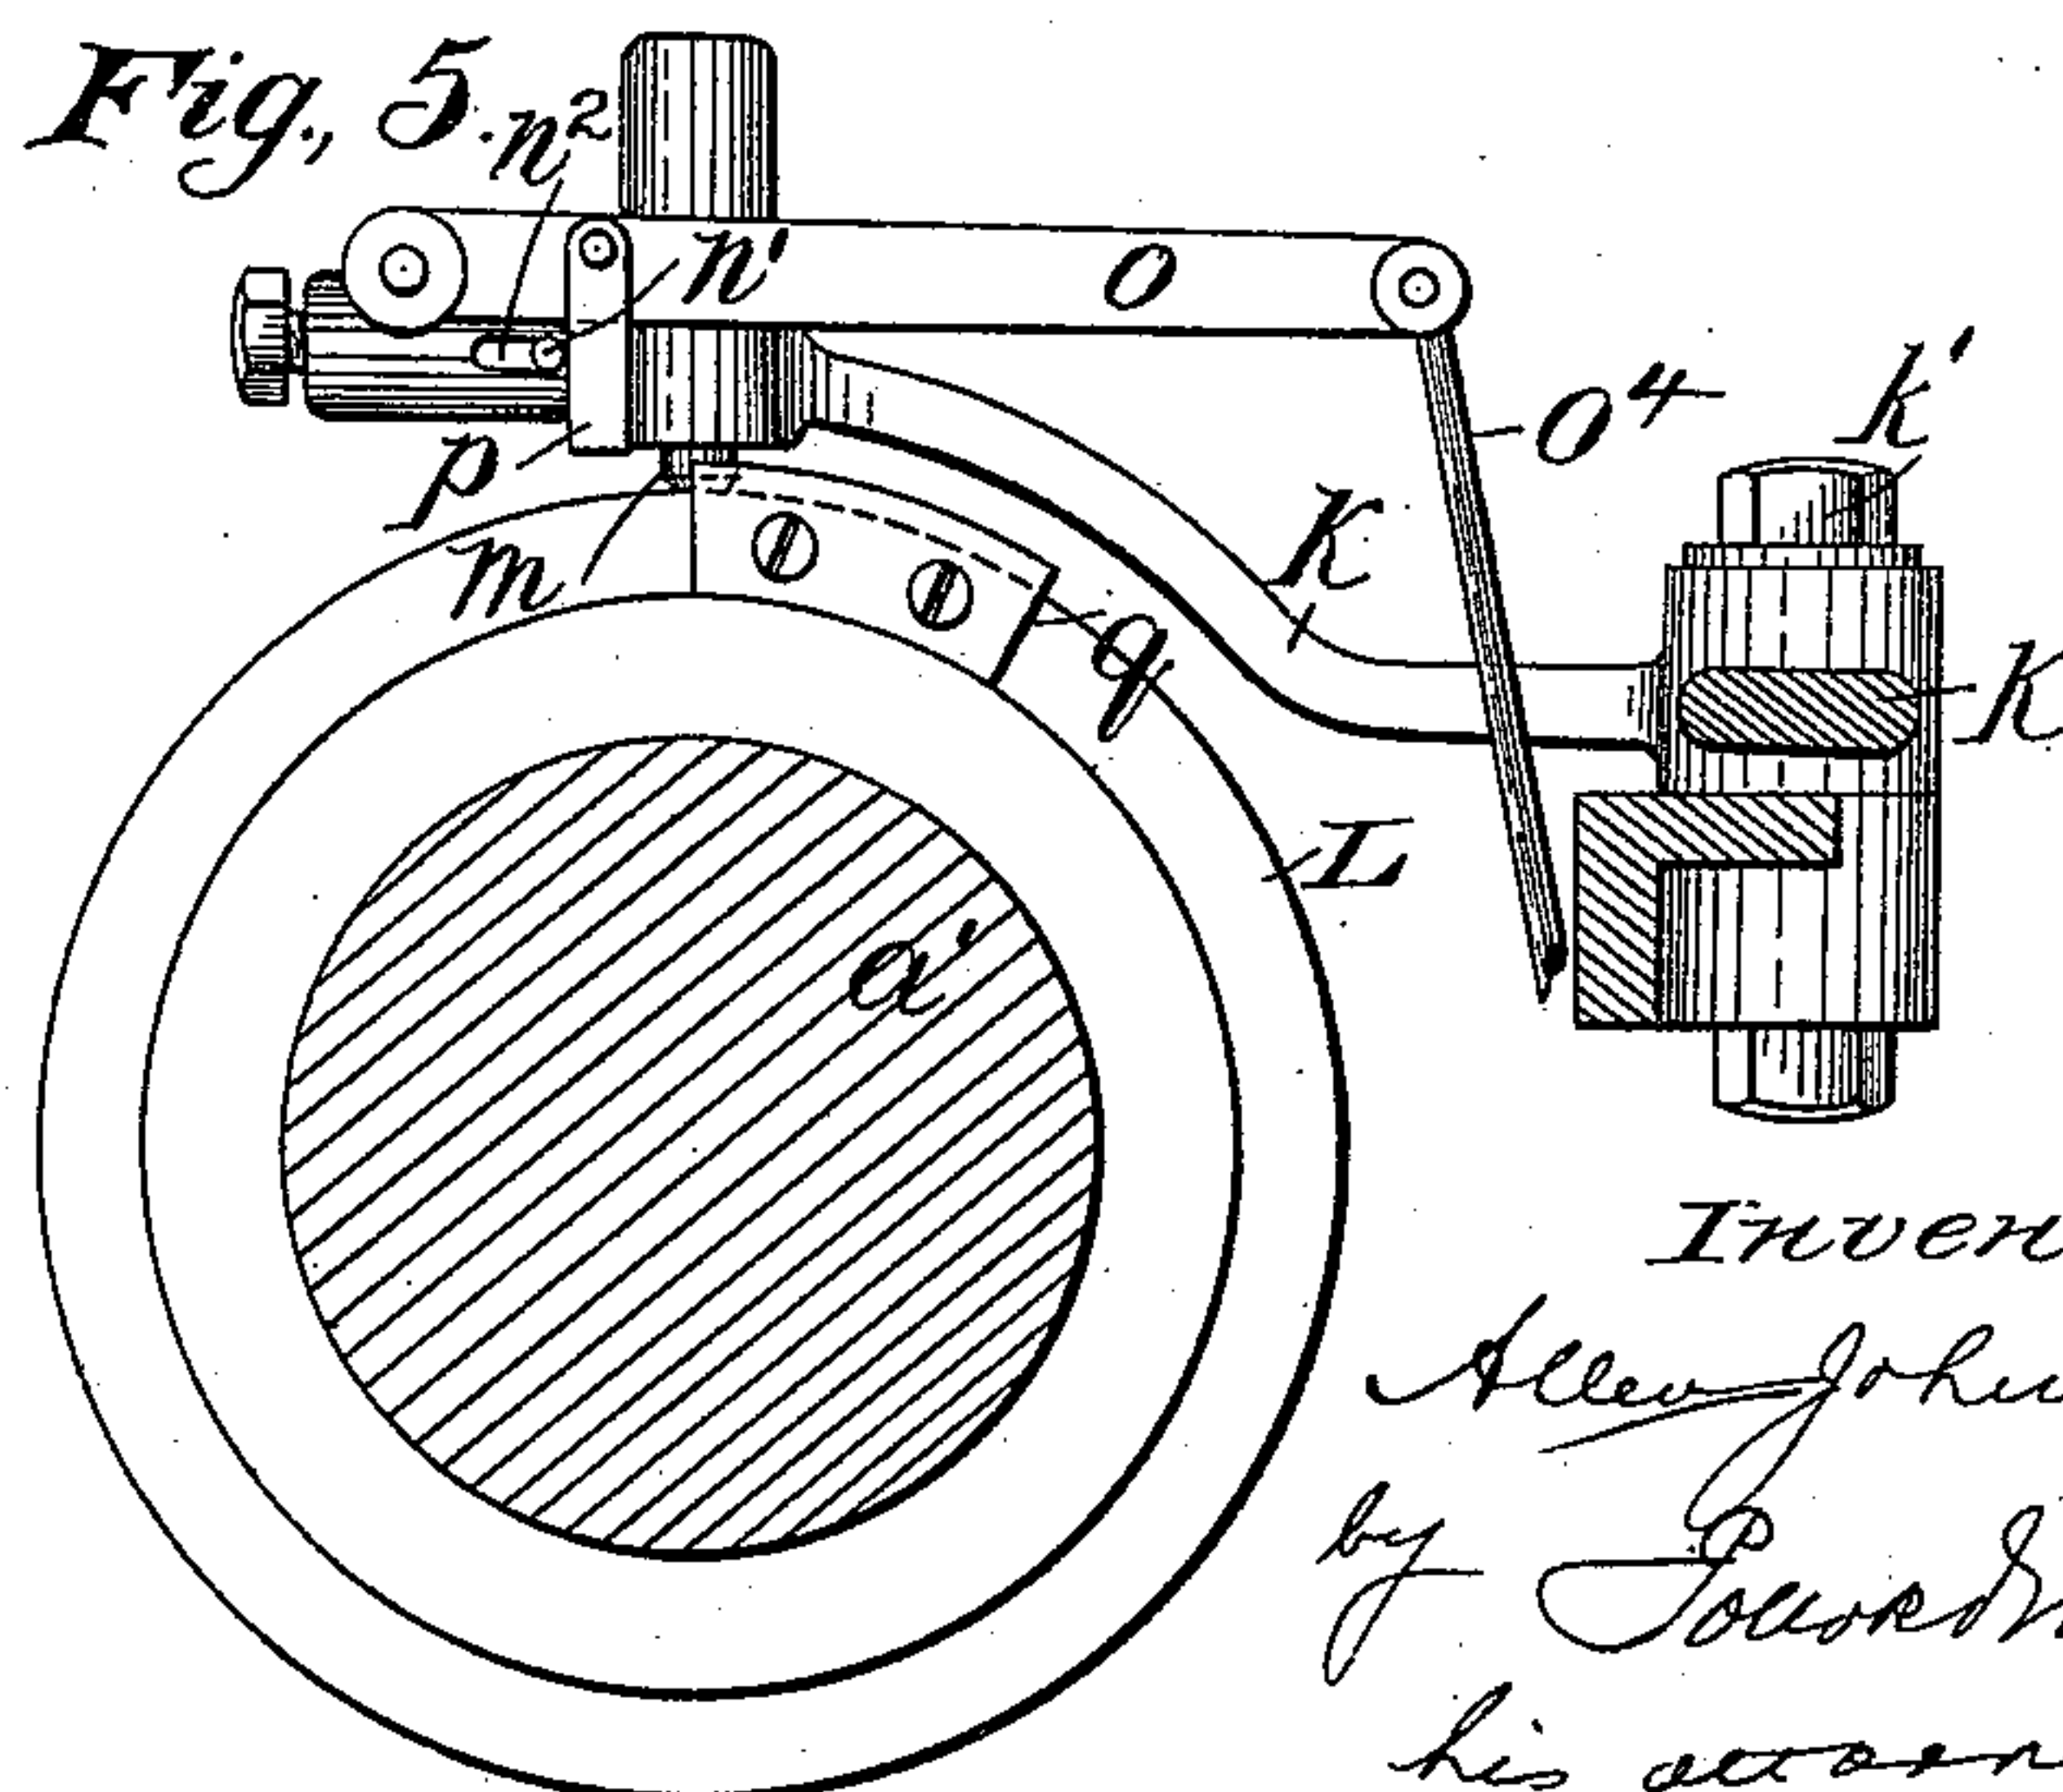 Fig. 5.
n²
n'
O
O⁴
k'
p
m
K
q
K
L
a'
Inven
Allen John
by
his attorn